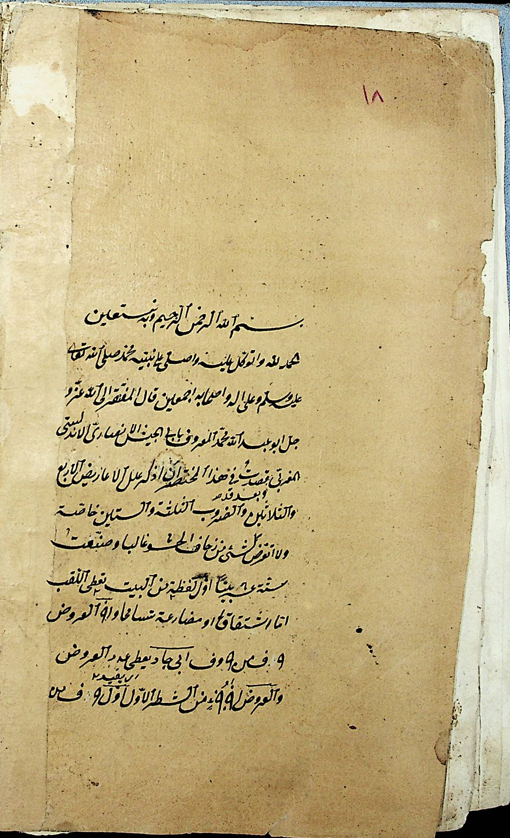 ١٨
بسم الله الرحمن الرحيم وبه نستعين
الحمد لله واتوكل عليه واصلى على نبيه محمد صلى الله تعالى
عليه وسلم وعلى اله واصحابه اجمعين قال المفتقر الى الله عز و
جل ابو عبد الله محمد المعروف بابى الجيش الانصارى الاندلسى
المغربى قصدت فى هذا المختصر ان اذكر علل الاعاريض الاربع
وبعد قد
والثلاثين والضروب الثلثة والستين خاصة
ولا اتعرض لشئ من زحاف الحشو غالبا وصنعت
ستة عشر بيتا اول لفظة من البيت يعطى اللقب
اما اشتقاقا او مضارعة تسامحا واول العروض
من حروف ابى جاد يعطى عدد العروض
والعروض من الشطر الاول اول من